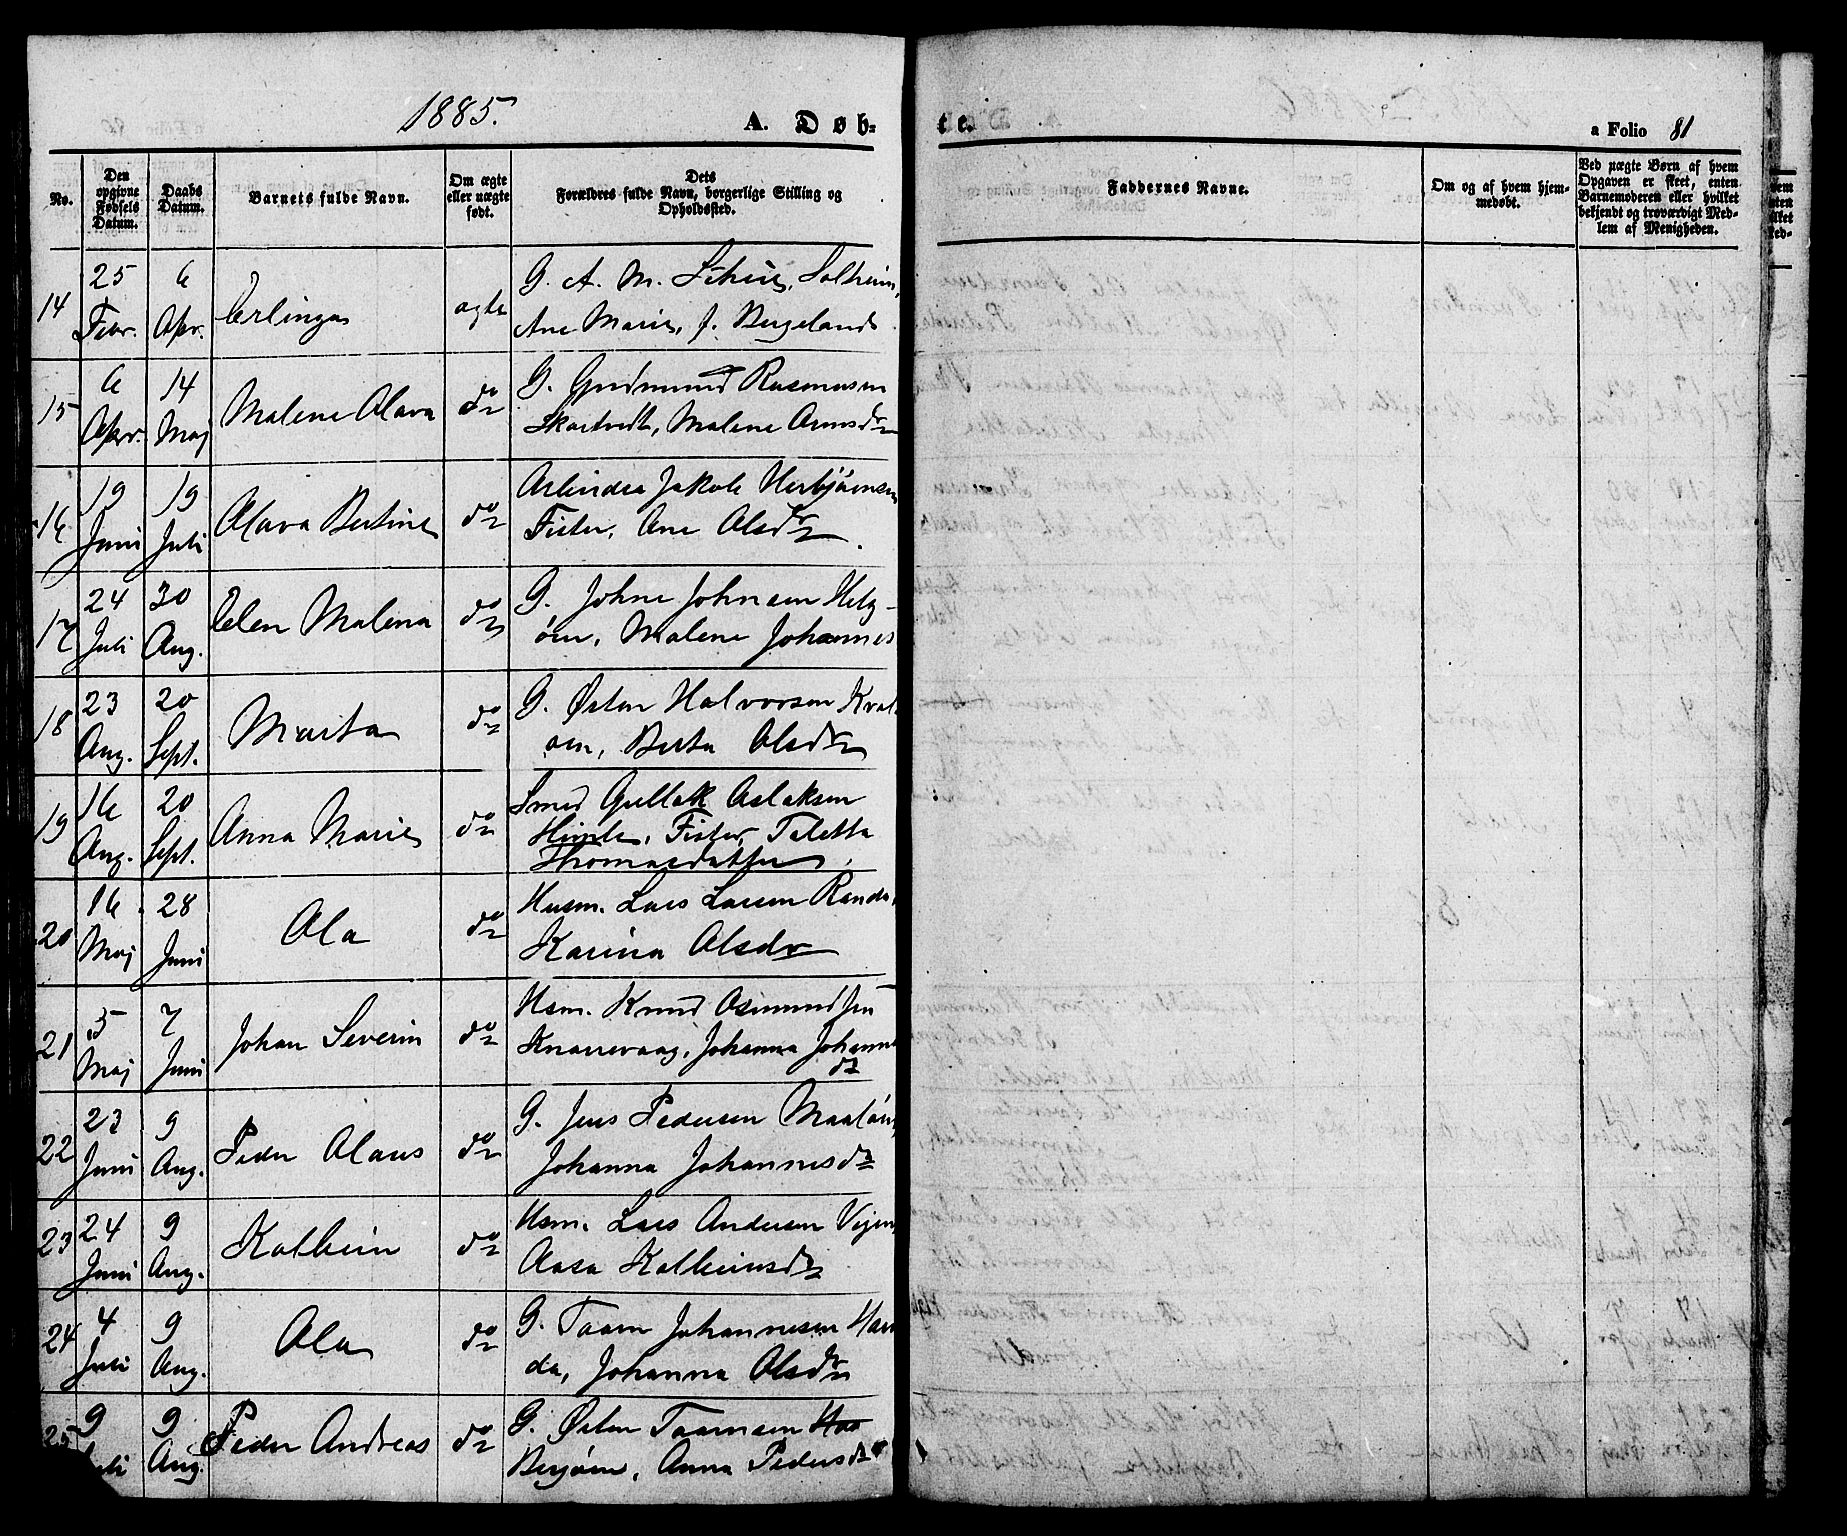 1885.
A. Døb-
te.
a Folio 81
No.
Den opgivne Fødsels Datum.
Daabs Datum.
Barnets fulde Navn.
Om ægte eller uægte født.
Dets Forældres fulde Navn, borgerlige Stilling og Opholdssted.
Faddernes Navne.
Om og af hvem hjemmedøbt.
Ved uægte Børn af hvem
Opgaven er skeet, enten
Barnemoderen eller hvilket
bekjendt og troværdigt Med-
lem af Menigheden.
14 25 Febr. 6 Apr. Erlinga ægte G. A. M. Solheim,
Ane Marie, f. Bergeland
15 6 Apr. 14 Maj Malene Olava do G. Gudmund Rasmusen
Skartvedt, Malene
16 19 Juni 19 Juli Olava Bertine do Arbeider Jakob Herbjörnsen
Fister, Ane Olsdr
17 24 Juli 30 Aug. Elen Malena do G. Johne Johnsen Helg-
öen, Malene Johannes
18 23 Aug. 20 Sept. Marta do G. Østen Halvorsen
oen, Berta Olsdr
19 16 Aug. 20 Sept. Anna Marie do Smed Gullak Aslaksen
Himle, Fister, Teletta
Thomasdatter
20 16 Maj 28 Juni Ola do Husm. Lars Larsen Randa,
Karina Olsdr
21 5 Maj 7 Juni Johan Severin do Hsm. Knud Osmundsen
Knarrevaag, Johanna Johannes
dr
22 23 Juni 9 Aug. Peder Olaus do G. Jens Pedersen
Johanna Johannesdr
23 24 Juni 9 Aug. Kolbein do Hsm. Lars Andersen
Aasa Kolbeinsdr
24 4 Juli 9 Aug. Ola do G. Taarn Johannesen
da, Johanna Olsdr
25 9 Juli 9 Aug. Peder Andreas do G. Østen Taarnsen
Bergöen, Anna Pedersdr